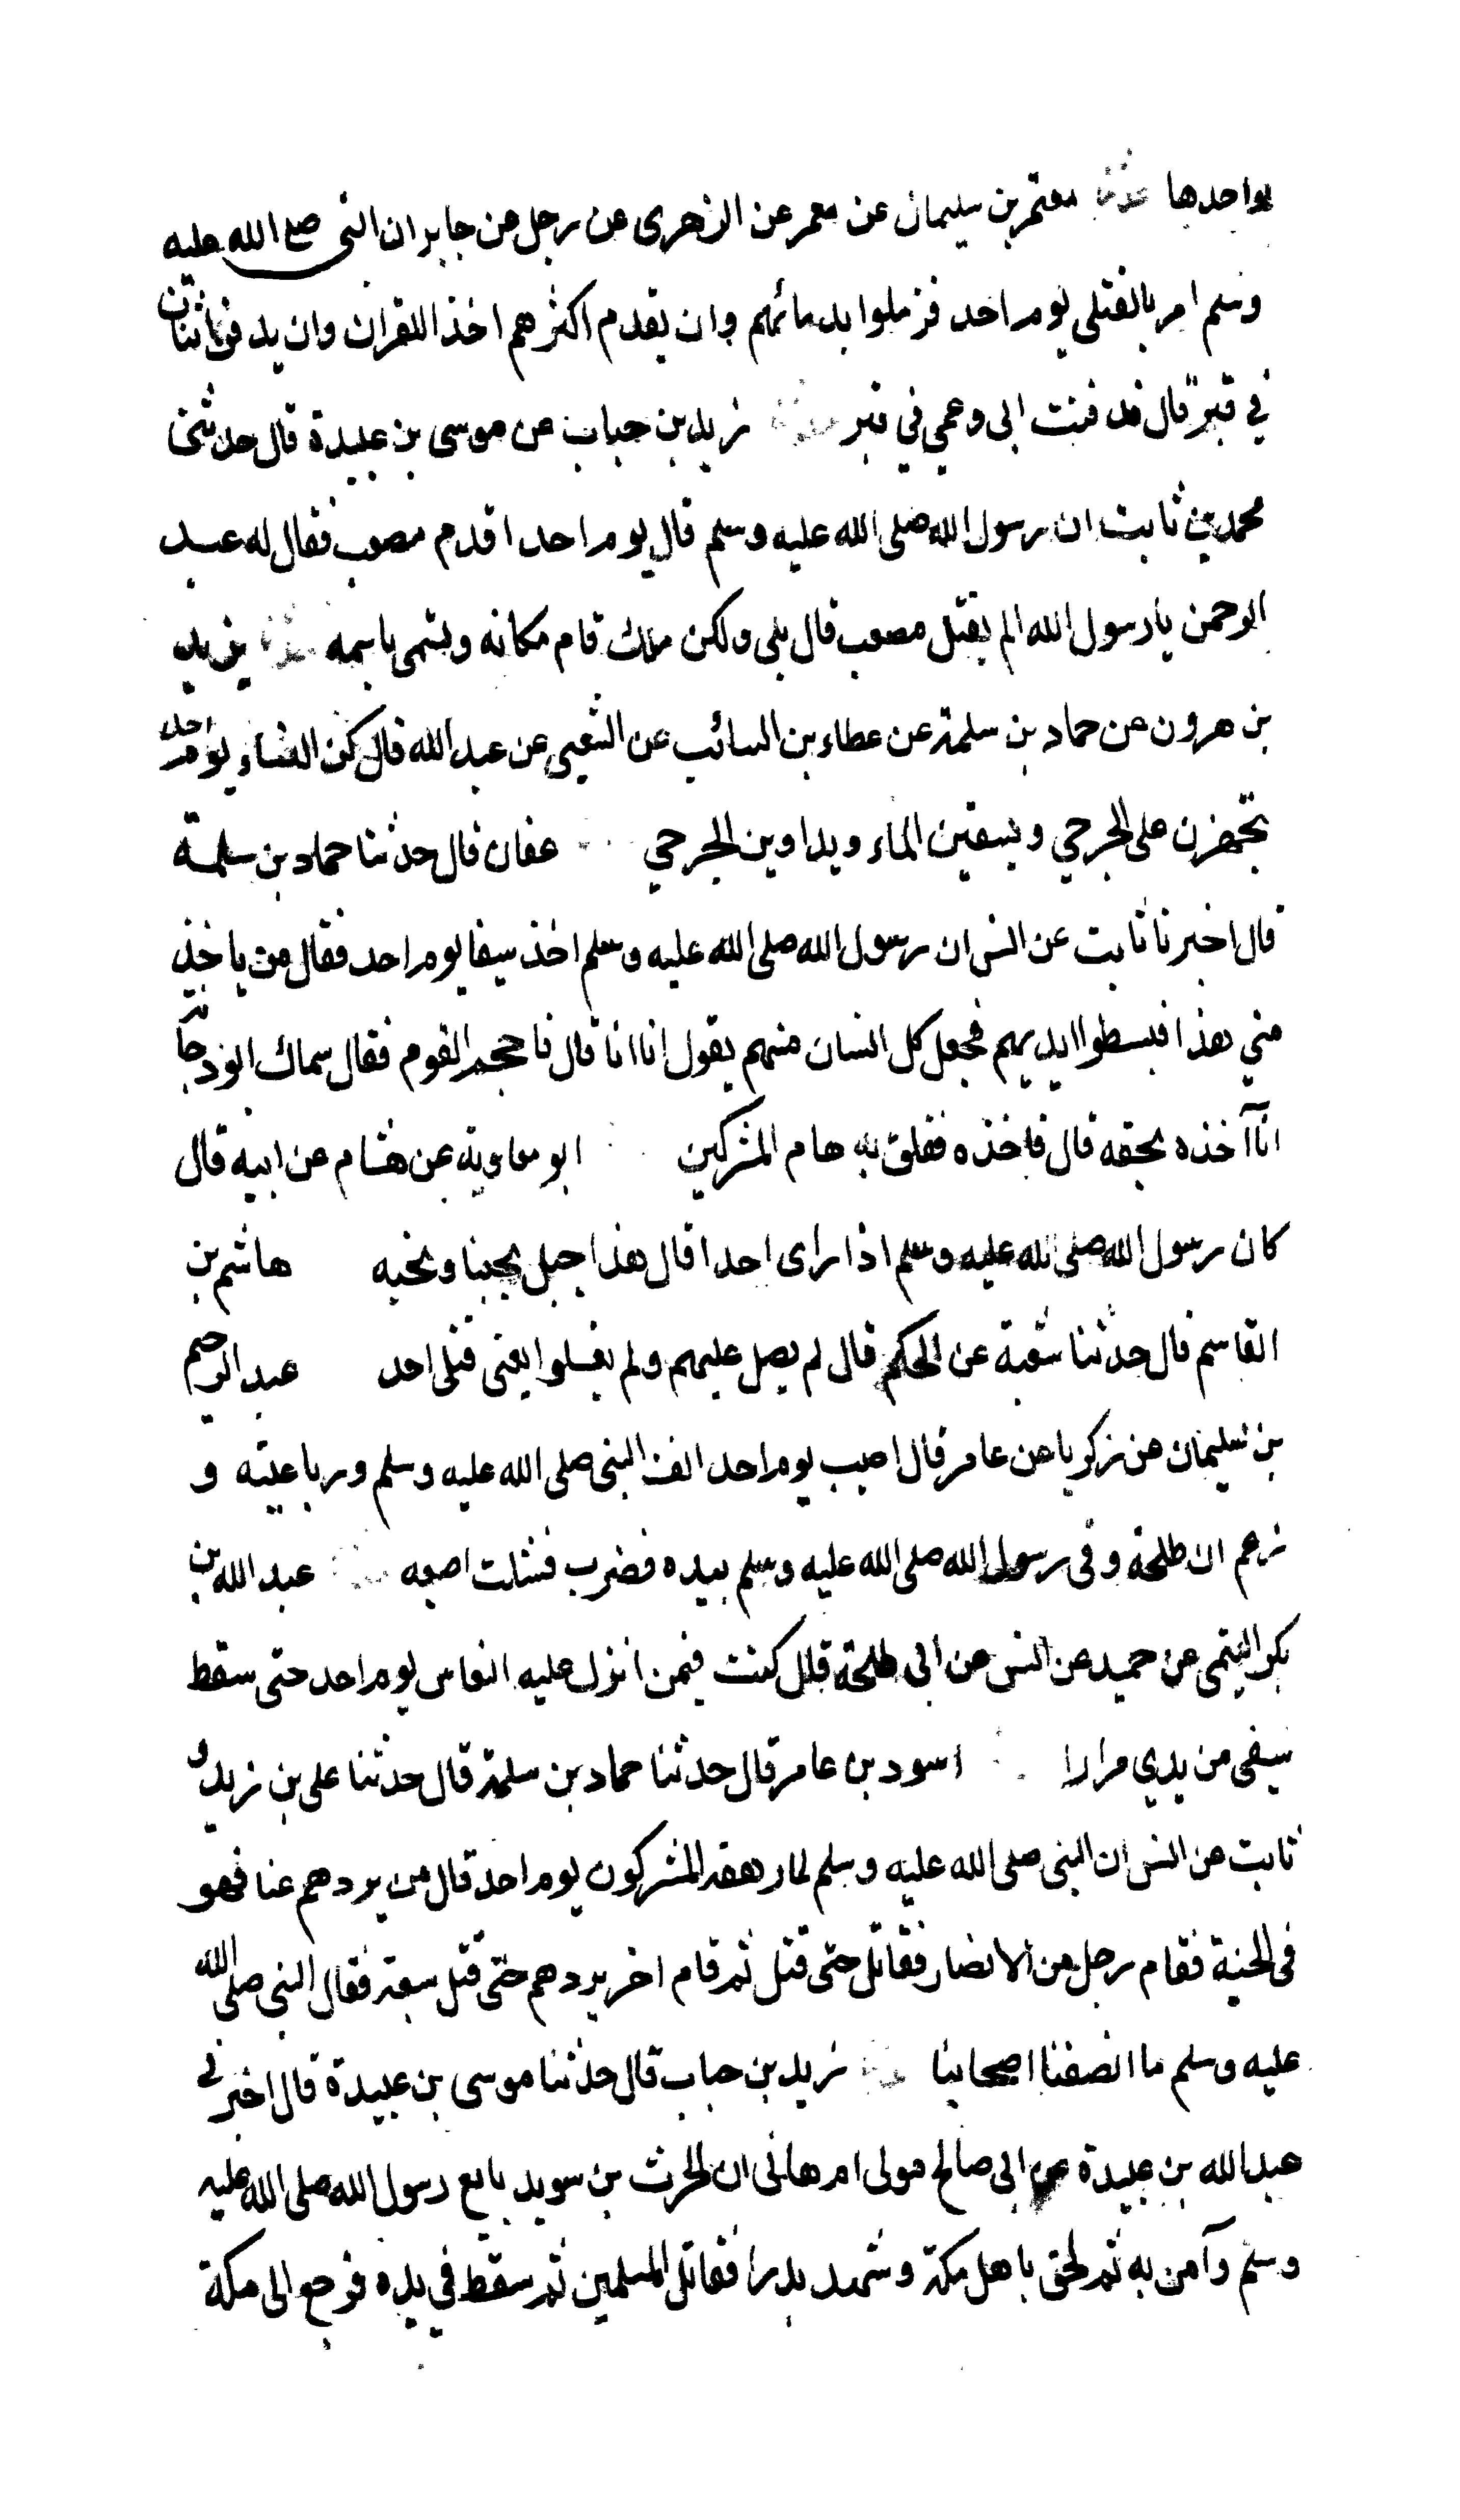 بواحدها حدثنا معتمر بن سليمان عن معمر عن الزهري عن رجل عن جابر ان النبي صلع الله عليه
وسلم امر بالقتلى يوم احد فزملوا بدمائهم وان يقدم اكثرهم اخذا للقران وان يدفن اثنان
في قبر قال فدفنت ابى وعمي في قبر حدثنا زيد بن حباب عن موسى بن عبيدة قال حدثنى
محمد بن ثابت ان رسول الله صلى الله عليه وسلم قال يوم احد اقدم مصعب فقال له عبد
الرحمن يا رسول الله الم يقتل مصعب قال بلى ولكن ملك قام مكانه وتسمى باسمه حدثنا يزيد
بن هرون عن حماد بن سلمة عن عطاء بن السائب عن الشعبى عن عبد الله قال كن النساء يوم احد
يجهزن على الجرحي ويسقين الماء ويداوين الجرحي عفان قال حدثنا حماد بن سلمة
قال اخبرنا ثابت عن انس ان رسول الله صلى الله عليه وسلم اخذ سيفا يوم احد فقال من ياخذ
مني هذا فبسطوا ايديهم فجعل كل انسان منهم يقول انا انا قال فاحجم القوم فقال سماك ابو دجانة
انا آخذه بحقه قال فاخذه ففلق به هام المشركين ابو معاوية عن هشام عن ابيه قال
كان رسول الله صلى الله عليه وسلم اذا راى احدا قال هذا جبل يحبنا ونحبه هاشم بن
القاسم قال حدثنا شعبة عن الحكم قال لم يصل عليهم ولم يغسلوا يعنى قتلى احد عبد الرحيم
بن سليمان عن زكريا عن عامر قال اصيب يوم احد انف النبى صلى الله عليه وسلم ورباعيته و
زعم ان طلحة وقى رسول الله صلى الله عليه وسلم بيده فضرب فشلت اصبعه عبد الله بن
بكر السهمى عن حميد عن انس عن ابى طلحة قال كنت فيمن انزل عليه النعاس يوم احد حتى سقط
سيفى من يدي مرارا اسود بن عامر قال حدثنا حماد بن سلمة قال حدثنا على بن زيد و
ثابت عن انس ان النبى صلى الله عليه وسلم لما رهقه المشركون يوم احد قال من يردهم عنا فهو
فى الجنة فقام رجل من الانصار فقاتل حتى قتل ثم قام اخر يردهم حتى قتل سبعة فقال النبى صلى الله
عليه وسلم ما انصفنا اصحابنا حدثنا زيد بن حباب قال حدثنا موسى بن عبيدة قال اخبرنى
عبد الله بن عبيدة عن ابى صالح مولى ام هانى ان الحرث بن سويد بايع رسول الله صلى الله عليه
وسلم وآمن به ثم لحق باهل مكة وشهد بدرا فقاتل المسلمين ثم سقط في يده فرجع الى مكة